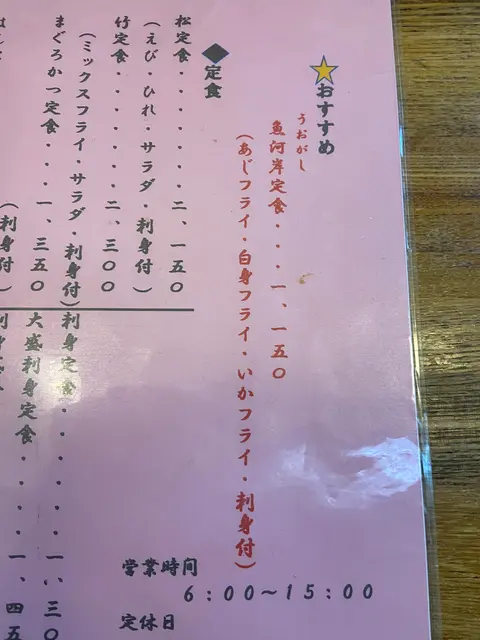 ★おすすめ
うおがし
魚河岸定食・・・・一、一五〇
(あじフライ・白身フライ・いかフライ・刺身付)
◆定食
松定食・・・・・・・二、一五〇
(えび・ひれ・サラダ・刺身付)
竹定食・・・・・・・二、三〇〇
(ミックスフライ・サラダ・刺身付)
まぐろかつ定食・・・・一、三五〇
(刺身付
刺身定食・・・・・・・一、三〇
大盛刺身定食・・・・一、四五
営業時間
6:00~15:00
定休日